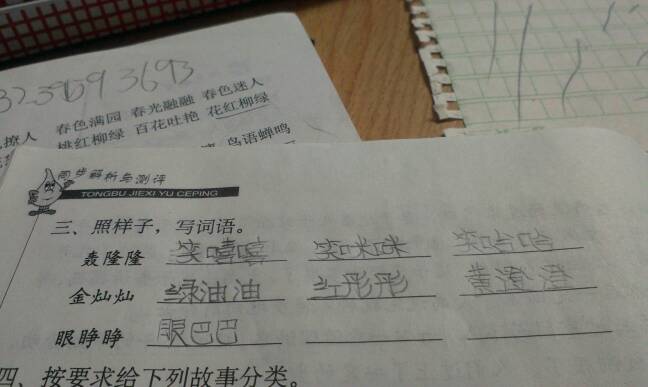 3239593693
撩人 春色满园 春光融融 春色迷人
桃红柳绿 百花吐艳 花红柳绿
鸟语蝉鸣
同步解析与测评
TONGBU JIEXI YU CEPING
三、照样子，写词语。
轰隆隆 笑嘻嘻 笑咪咪 笑哈哈
金灿灿 绿油油 红彤彤 黄澄澄
眼睁睁 眼巴巴
四、按要求给下列故事分类。